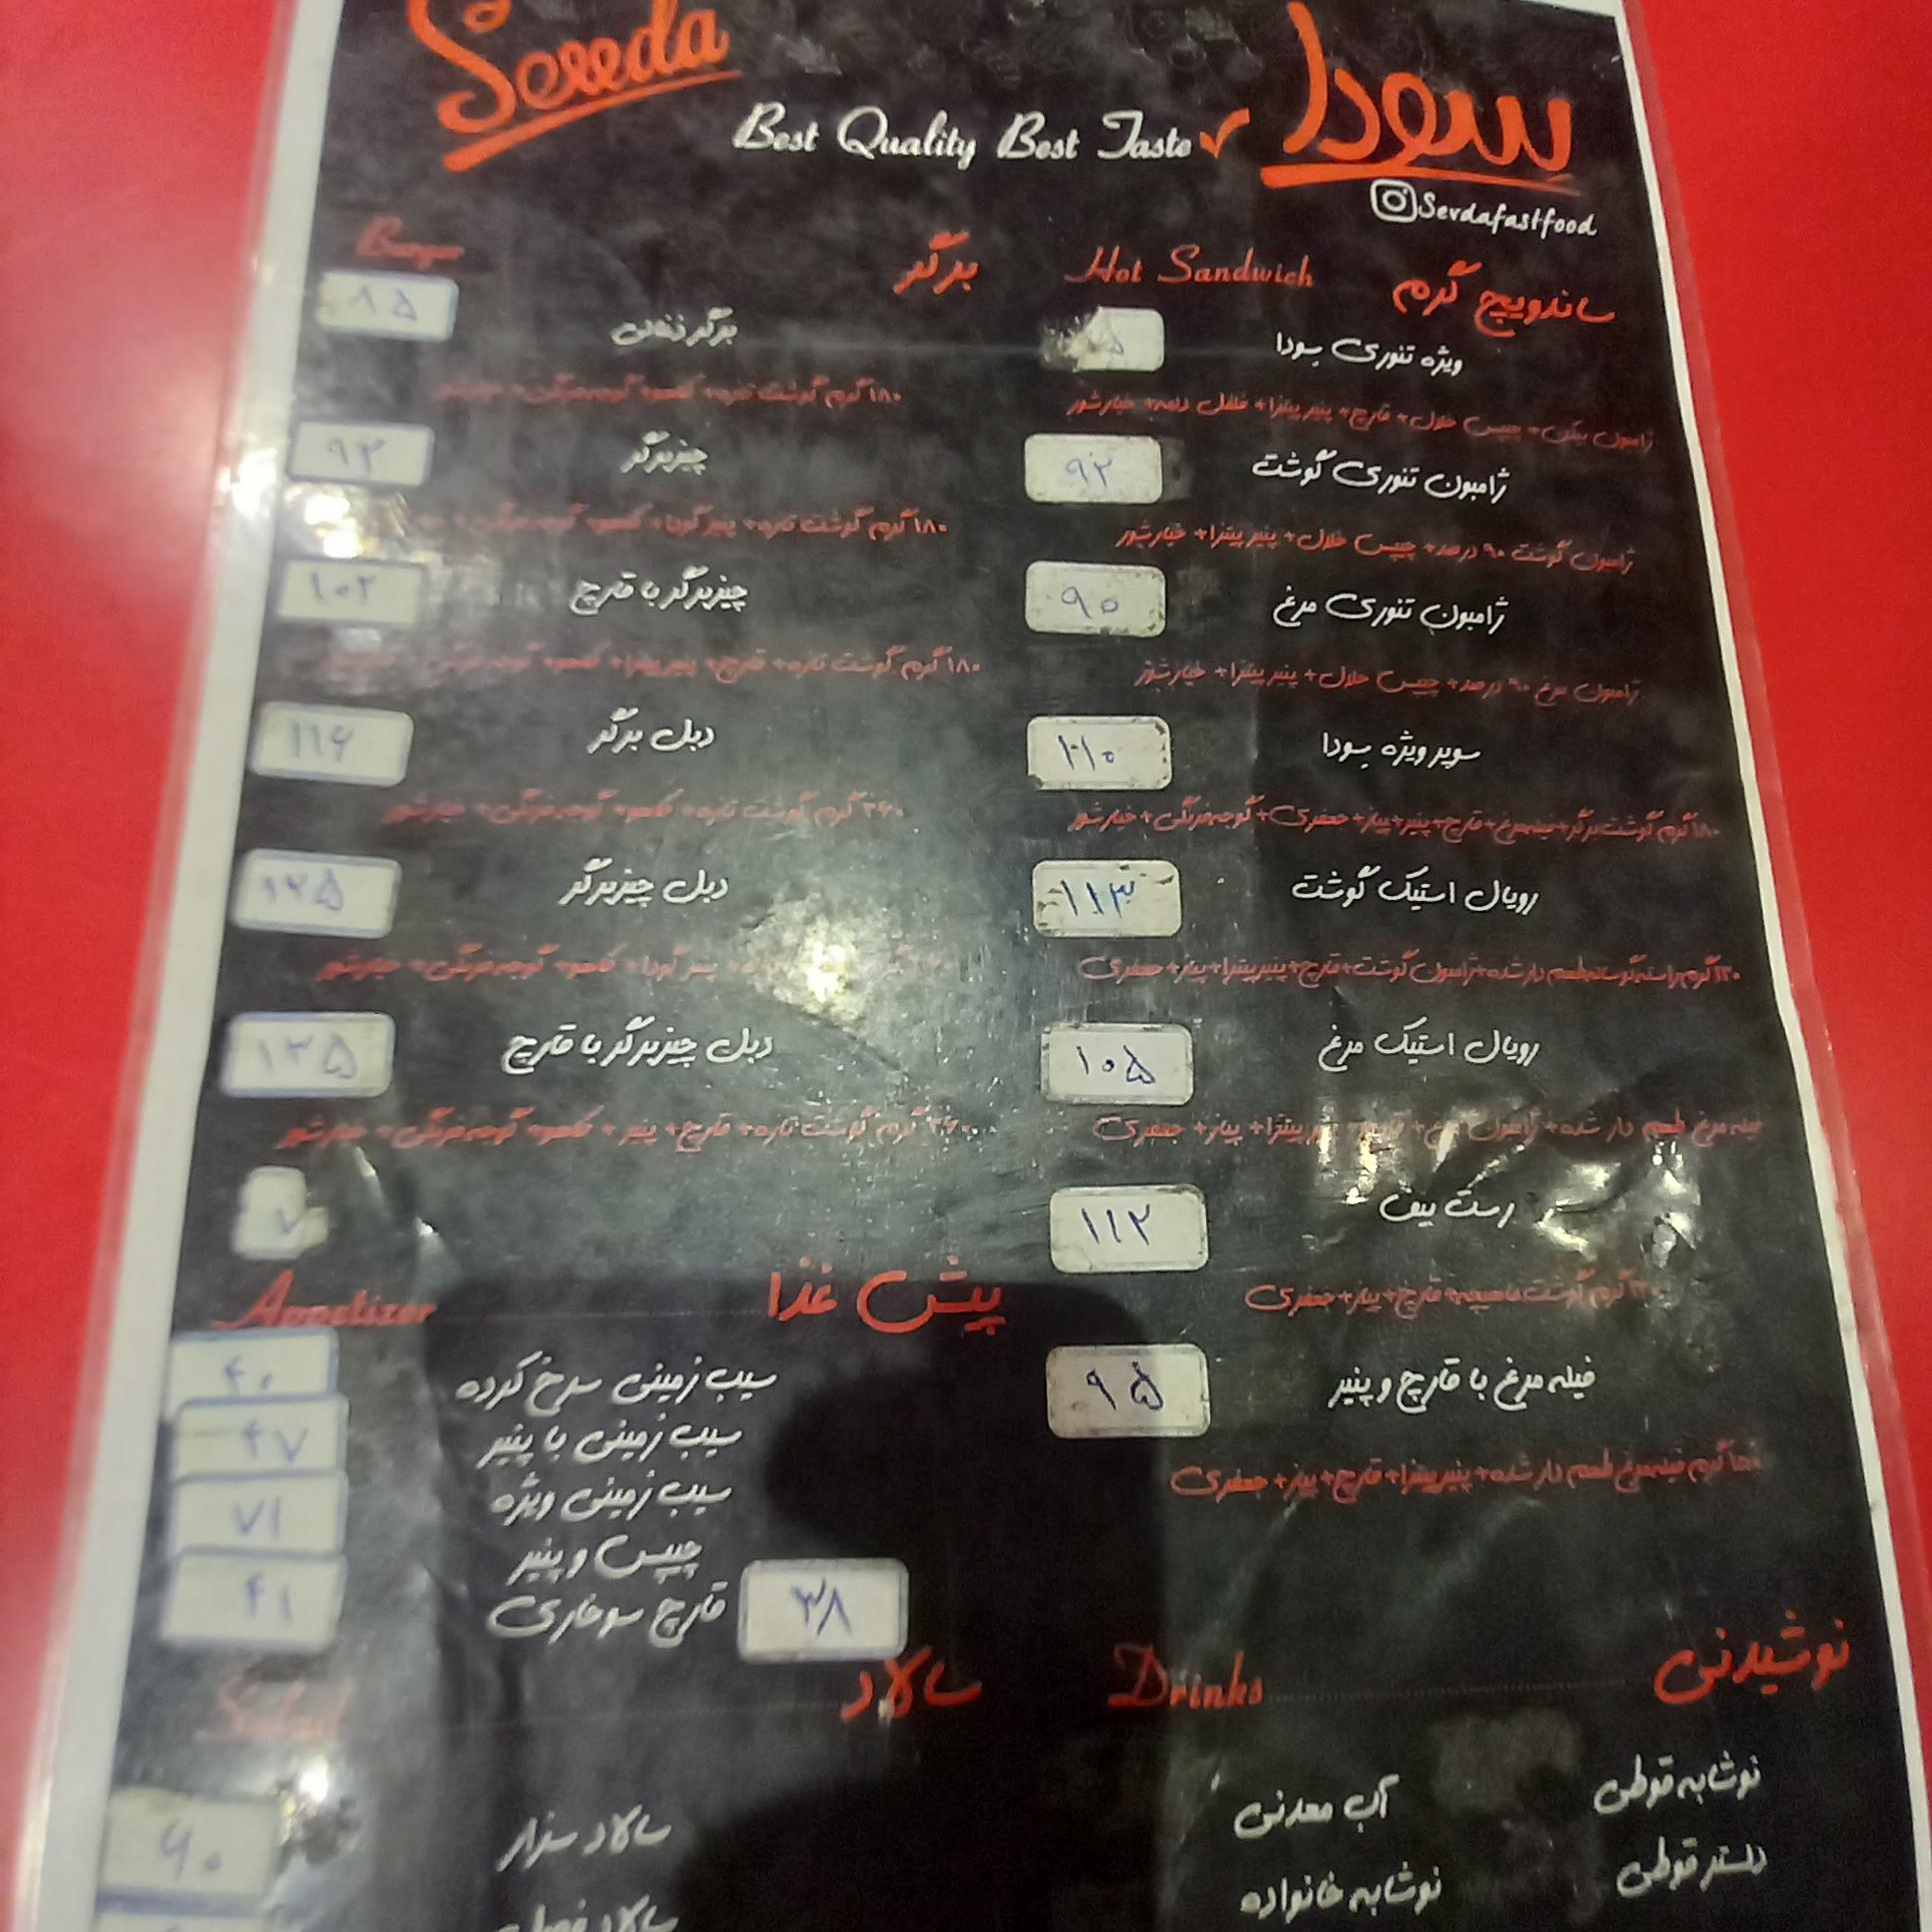 سودا
Best Quality Best Taste
Sevdafastfood
ساندویچ گرم Hot Sandwich
ویژه تنوری سودا
ژامبون بیکن + چیپس خلال + قارچ + پنیر پیتزا + فلفل دلمه + خیارشور
ژامبون تنوری گوشت ۹۲
ژامبون گوشت ۹۰ درصد + چیپس خلال + پنیر پیتزا + خیارشور
ژامبون تنوری مرغ ۹۰
ژامبون مرغ ۹۰ درصد + چیپس خلال + پنیر پیتزا + خیارشور
سوپر ویژه سودا ۱۱۰
۱۸۰ گرم گوشت برگر + فیله مرغ + قارچ + پنیر + پیاز + جعفری + گوجه فرنگی + خیارشور
رویال استیک گوشت ۱۱۳
۱۲۰ گرم راسته گوساله طعم دار شده + ژامبون گوشت + قارچ + پنیر پیتزا + پیاز + جعفری
رویال استیک مرغ ۱۰۵
فیله مرغ طعم دار شده + ژامبون مرغ + پنیر پیتزا + پیاز + جعفری
رست بیف ۱۱۲
گرم گوشت ماهیچه + قارچ + پیاز + جعفری
فیله مرغ با قارچ و پنیر ۹۵
۱۵۰ گرم فیله مرغ طعم دار شده + پنیر پیتزا + قارچ + پیاز + جعفری
نوشیدنی Drinks
نوشابه قوطی آب معدنی
دلستر قوطی نوشابه خانواده
برگر Burger
برگر ۸۵
۱۸۰ گرم گوشت تازه + کاهو + گوجه فرنگی + خیارشور
چیزبرگر ۹۳
۱۸۰ گرم گوشت تازه + پنیر گودا + کاهو + گوجه فرنگی
چیزبرگر با قارچ ۱۰۲
۱۸۰ گرم گوشت تازه + قارچ + پنیر پیتزا + کاهو + گوجه فرنگی
دبل برگر ۱۱۶
۳۶۰ گرم گوشت تازه + کاهو + گوجه فرنگی + خیارشور
دبل چیزبرگر ۱۲۵
پنیر گودا + کاهو + گوجه فرنگی + خیارشور
دبل چیزبرگر با قارچ ۱۳۵
۳۶۰ گرم گوشت تازه + قارچ + پنیر + کاهو + گوجه فرنگی + خیارشور
پیش غذا Appetizer
سیب زمینی سرخ کرده ۴۰
سیب زمینی با پنیر ۴۷
سیب زمینی ویژه ۷۱
چیپس و پنیر ۴۱
قارچ سوخاری ۳۸
سالاد Salad
سالاد سزار ۶۰
سالاد